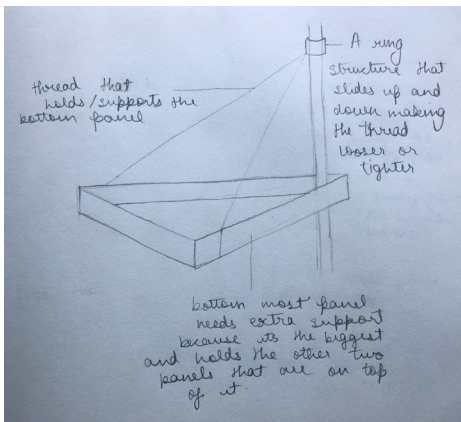 thread that
holds/supports the
bottom panel
A ring
structure that
slides up and
down making
the thread
looser or
tighter
bottom most panel
needs extra support
because its the biggest
and holds the other two
panels that are on top
of it.